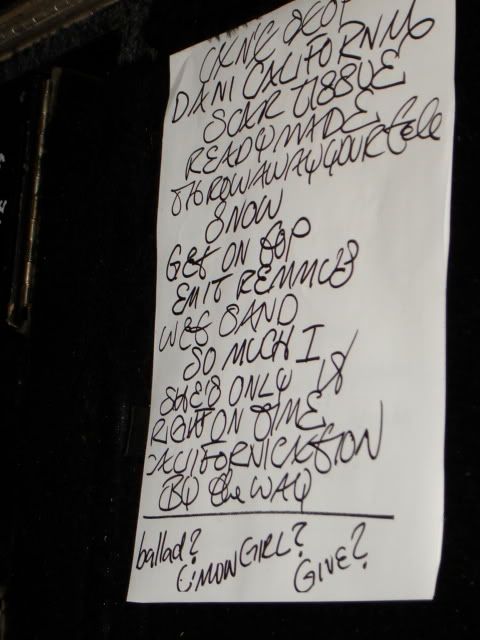 CAN'T STOP
DANI CALIFORNIA
SCAR TISSUE
READYMADE
THROW AWAY YOUR tele
SNOW
GET ON TOP
EMIT REMMUS
WET SAND
SO MUCH I
SHE'S ONLY 18
RIGHT ON TIME
CALIFORNICATION
BY the WAY
ballad?
C'MON GIRL?
GIVE?